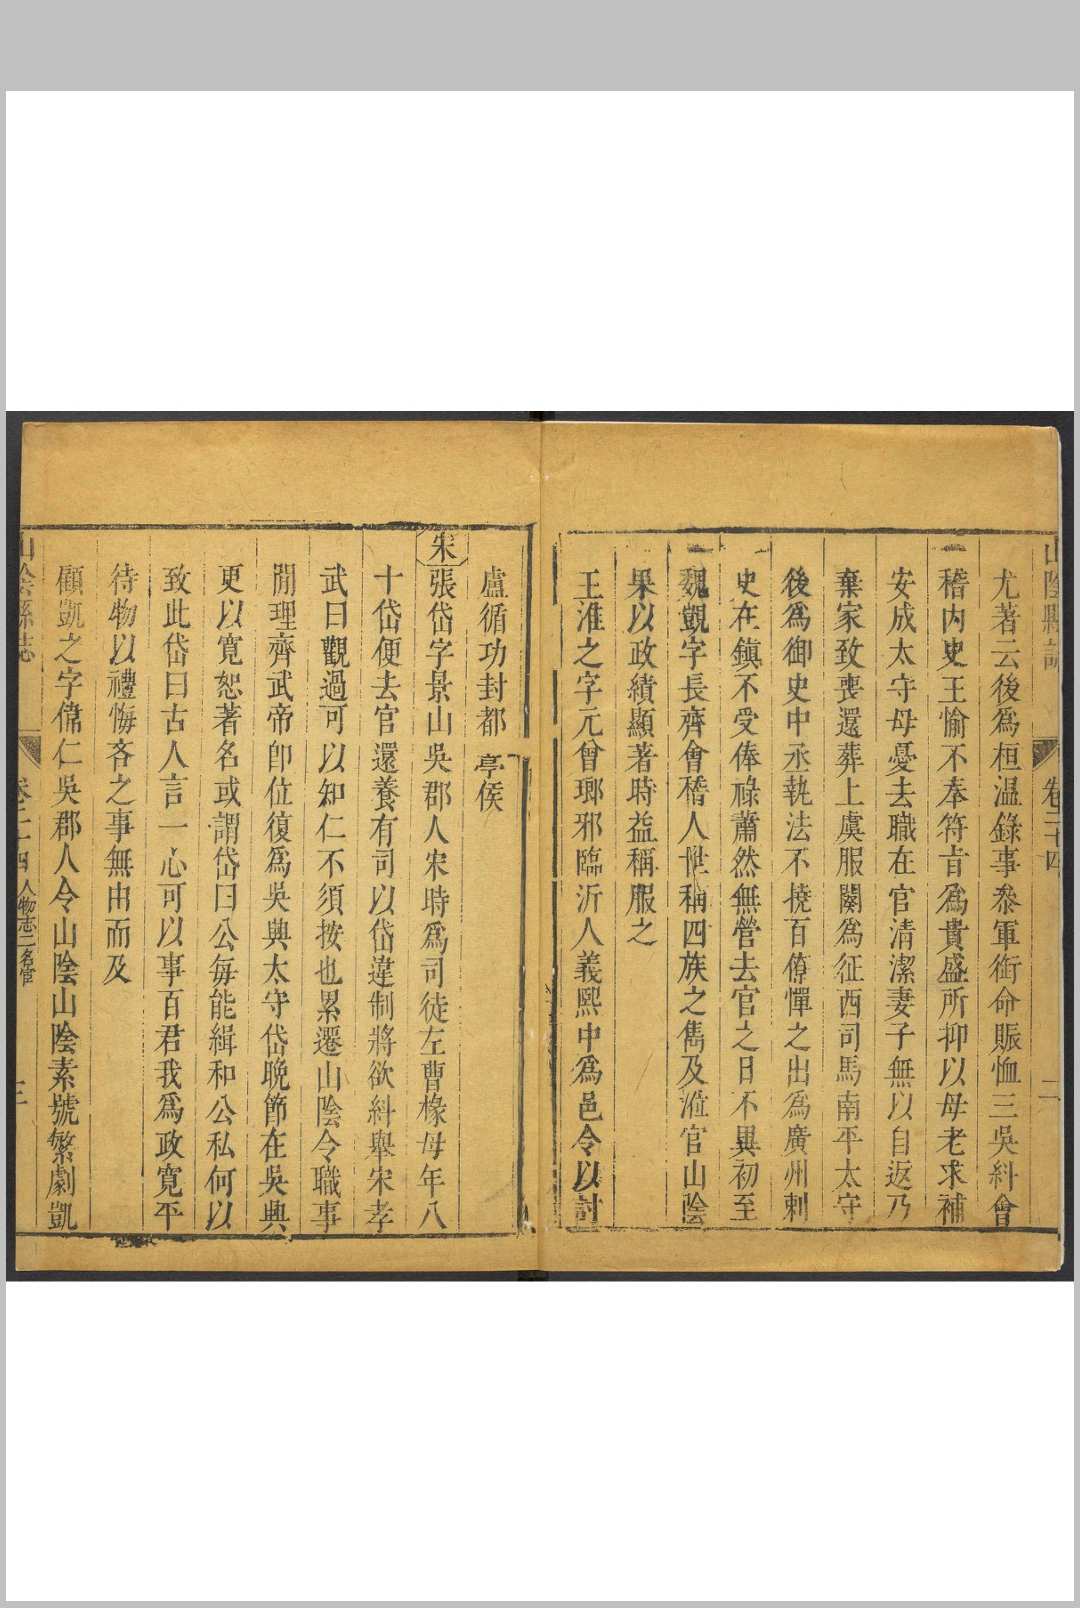 山陰縣志
卷二十四
二
尤著云後爲桓温錄事參軍銜命賑恤三吳糾會
稽内史王愉不奉符㫖爲貴盛所抑以母老求補
安成太守母憂去職在官清潔妻子無以自返乃
棄家致喪還葬上虞服闋爲征西司馬南平太守
後爲御史中丞執法不撓百僚憚之出爲廣州刺
史在鎮不受俸祿蕭然無營去官之日不異初至
魏顗字長齊會稽人世稱四族之雋及涖官山陰
果以政績顯著時益稱服之
王淮之字元曾瑯邪臨沂人義熙中爲邑令以討
盧循功封都亭侯
宋張岱字景山吳郡人宋時爲司徒左曹椽母年八
十岱便去官還養有司以岱違制將欲糾舉宋孝
武曰觀過可以知仁不須按也累遷山陰令職事
閒理齊武帝卽位復爲吳興太守岱晩節在吳興
更以寛恕著名或謂岱曰公每能緝和公私何以
致此岱曰古人言一心可以事百君我爲政寛平
待物以禮悔吝之事無由而及
顧凱之字偉仁吳郡人令山陰山陰素號繁劇凱
山陰縣志
卷二十四 人物志二名宦
三